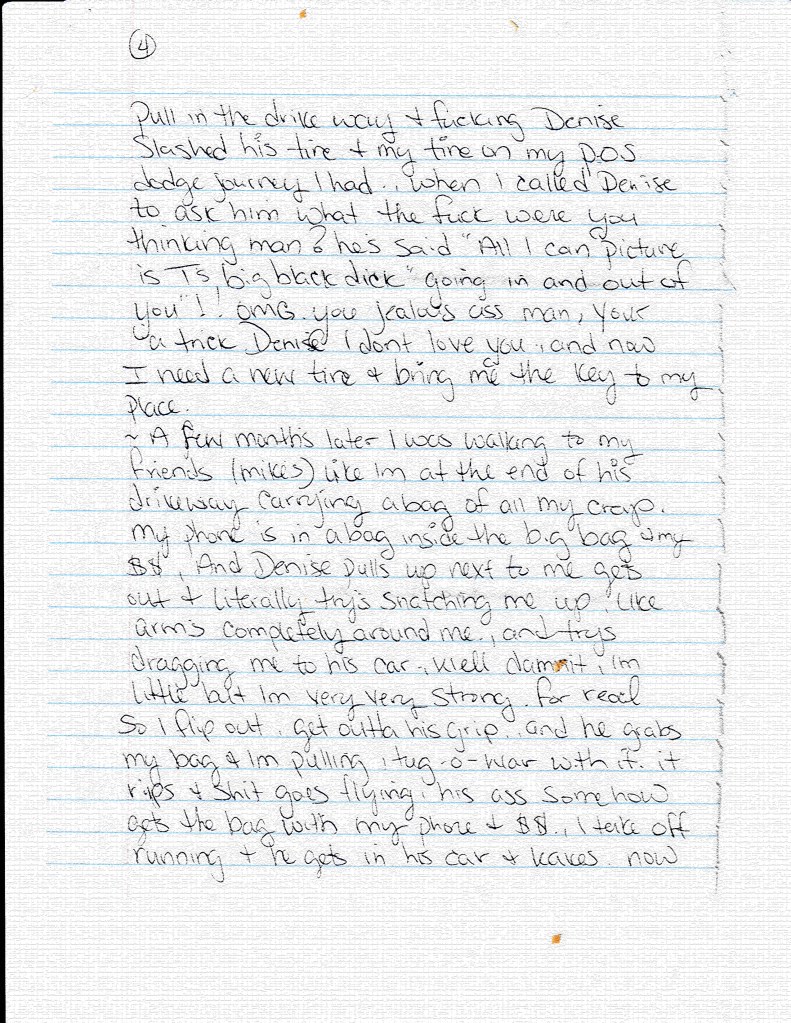 ④
Pull in the drive way & fucking Denise
Slashed his tire & my tire on my P.O.S
dodge journey I had.. When I called Denise
to ask him what the fuck were you
thinking man? he's said "All I can picture
is Ts, big black dick" going in and out of
you"!! OMG. you jealous ass man, your
a trick Denise I dont love you, and now
I need a new tire & bring me the key to my
place.
~ A few months later I was walking to my
friends (mikes) like Im at the end of his
driveway carrying a bag of all my crap.
my phone is in a bag inside the big bag & my
$$, And Denise pulls up next to me gets
out & literally try's snatching me up, like
arms completely around me., and trys
dragging me to his car., Well dammit, Im
little but Im very very strong. for real
So I flip out, get outta his grip., and he grabs
my bag & Im pulling, tug-o-war with it. it
rips & shit goes flying, his ass somehow
gets the bag with my phone & $$., I take off
running & he gets in his car & leaves. now